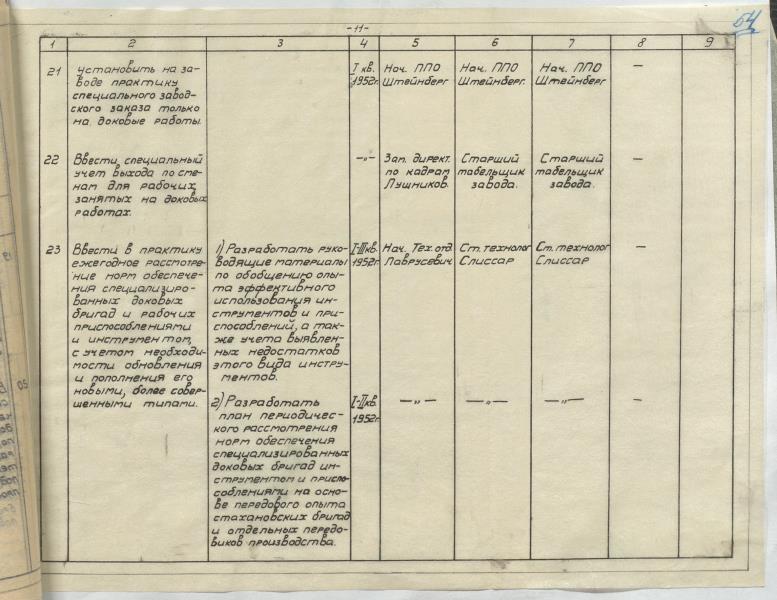 54
-11-
1 2 3 4 5 6 7 8 9
21
Установить на за-
воде практику
специального завод-
ского заказа только
на доковые работы.
I кв.
1952г.
Нач. ППО
Штейнберг
Нач. ППО
Штейнберг.
Нач. ППО
Штейнберг
—
22
Ввести специальный
учет выхода по сме-
нам для рабочих,
занятых на доковых
работах.
—"—
Зам. директ.
по кадрам
Лушников.
Старший
табельщик
завода.
Старший
табельщик
завода.
—
23
Ввести в практику
ежегодное рассмотре-
ние норм обеспече-
ния специализиро-
ванных доковых
бригад и рабочих
приспособлениями
и инструментом,
с учетом необходи-
мости обновления
и пополнения его
новыми, более совер-
шенными типами.
1) Разработать руко-
водящие материалы
по обобщению опы-
та эффективного
использования ин-
струментов и при-
способлений, а так-
же учета выявлен-
ных недостатков
этого вида инстру-
ментов.
I-III кв.
1952г.
Нач. Тех. отд.
Лаврусевич
Ст. технолог
Слиссар
Ст. технолог
Слиссар
—
2) Разработать
план периодичес-
кого рассмотрения
норм обеспечения
специализированных
доковых бригад ин-
струментом и приспо-
соблениями на осно-
ве передового опыта
стахановских бригад
и отдельных передо-
виков производства.
I-II кв.
1952г.
—"—
—"—
—"—
—